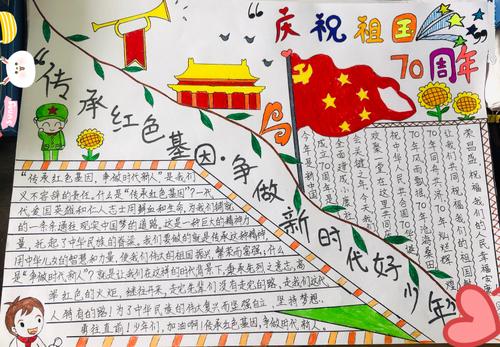 “庆祝祖国
70周年”
“传承红色基因·争做新时代好少年”
“传承红色基因，争做时代新人”是我们
义不容辞的责任。什么是“传承红色基因”？一代
代爱国英雄和仁人志士用鲜血和生命，为我们铺就
的一条条通往实现中国梦的道路，这是一种巨大的精神力
量，托起了中华民族的脊梁。我们要做的就是传承这种精神，
用中华儿女的智慧和力量，使我们伟大的祖国振兴、繁荣而富强。什么
是“争做时代新人”？就是让我们在这样的时代背景下，秉承先烈之遗志，高
举红色的火炬，继往开来，走前辈们没有走完的路，走我们这代
人独有的路！为了中华民族的伟大复兴而坚强自立，坚持梦想，
勇往直前！少年们，加油啊！传承红色基因，争做时代新人。
今年是新中国
成立70周年
全面建成小康
欢聚一堂在这里共同
祝中华人民共和国70
70年风雨
70年沧海桑田
我们共同祝福我们的祖国
荣昌盛祝福我们的祖国